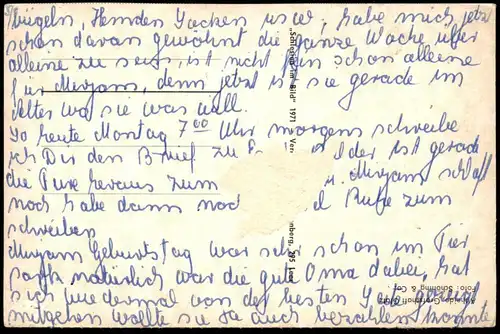 bügeln, Hemden Jacken usw, habe mich jetzt
schon daran gewöhnt die ganze Woche über
alleine zu sein, ist nicht fein schon alleine
für Mirjam, denn jetzt ist sie gerade im
Alter wo sie was will.
So heute Montag 7 00 Uhr morgens schreibe
ich Dir den Brief zu ist gerade
die Türe heraus zum u. Mirjam schläft
noch habe dann noch Ruhe zum
schreiben
Mirjam Geburtstag war schön im Tier
park natürlich war die gute Oma dabei, hat
sich wiedermal von der besten Seite gezeigt
mitgehen wollte sie ja auch bezahlen konnte
1971